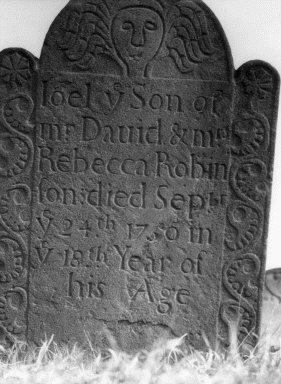 Ioel yͤ Son of
mr Dauid & mrs
Rebecca Robin
son: died Sept
yͤ 24th 1750 in
yͤ 18th Year of
his Age